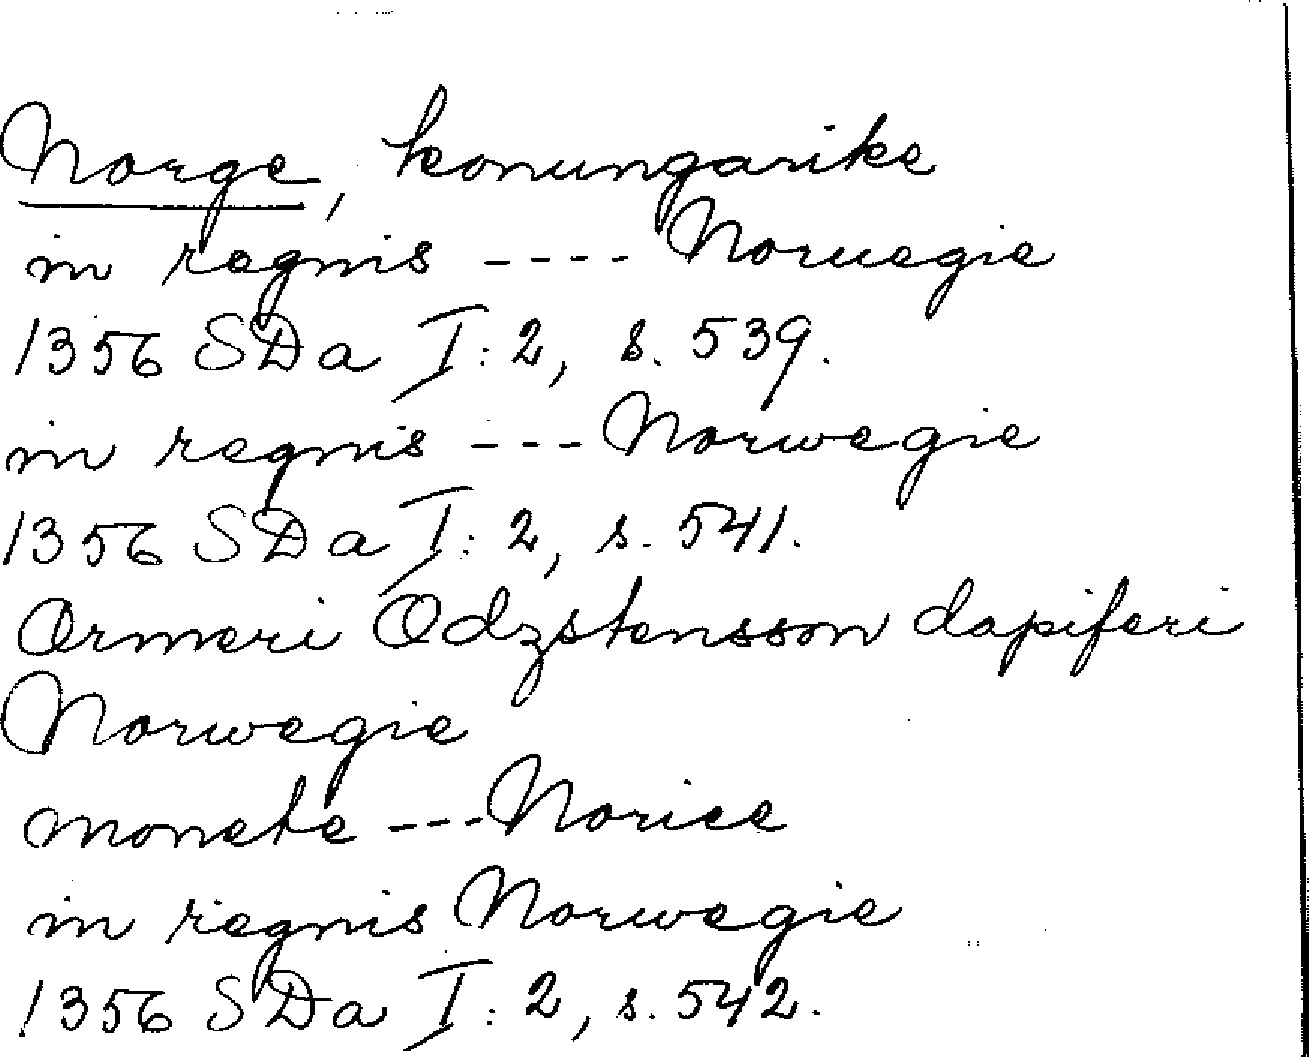 Norge, konungarike
in regnis ---- Noruegie
1356 SDa I:2, s. 539.
in regnis --- Norwegie
1356 SDa I:2, s. 541.
Ormeri Odzstensson dapiferi
Norwegie
monete --- Norice
in regnis Norwegie
1356 SDa I:2, s. 542.